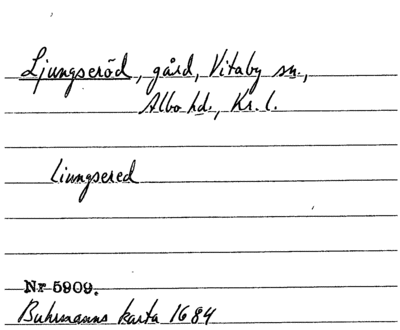 Ljungseröd, gård, Vitaby sn.,
Albo hd., Kr. l.
Liungsered
Nr 5909.
Buhrmanns karta 1684